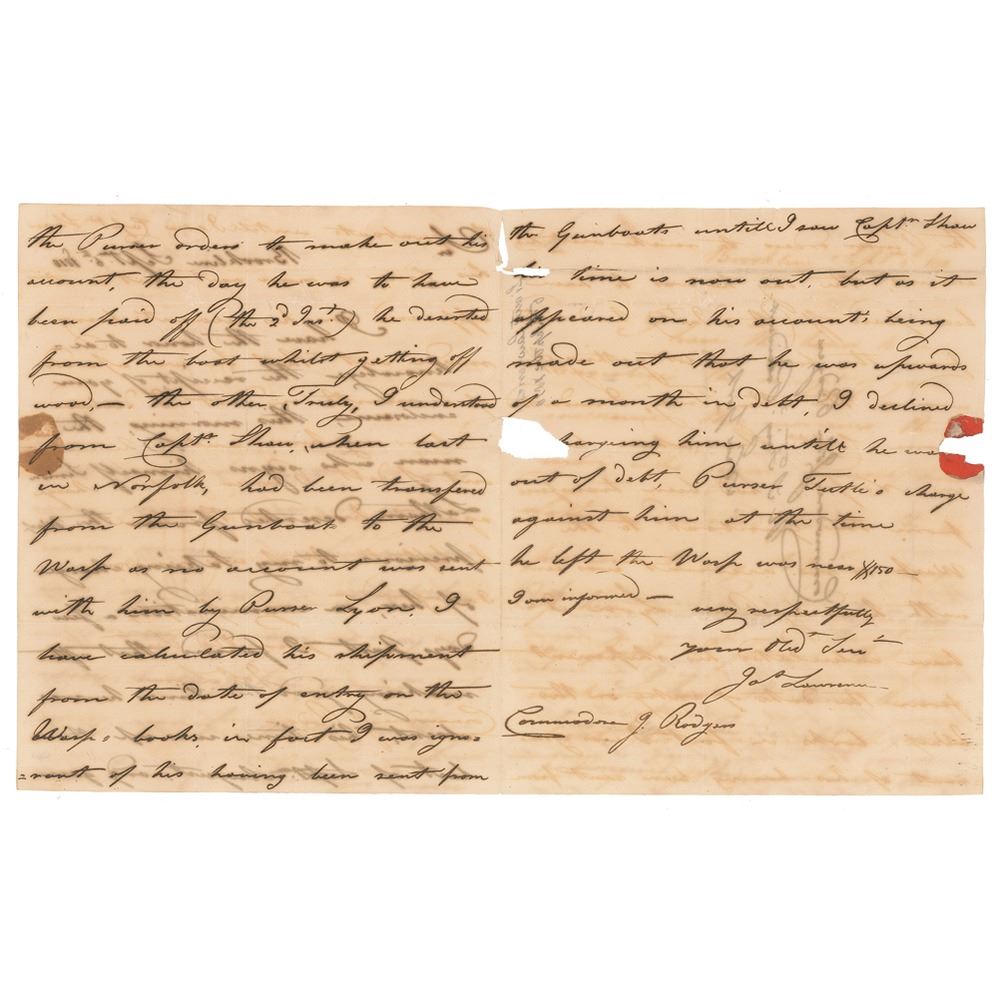 the Purser orders to make out his
account, the day he was to have
been paid off (the 2d Inst.) he deserted
from the boat whilst getting off
wood, — the other, Truly, I understood
from Captn. Shaw, when last
in Norfolk, had been transfered
from the Gunboat to the
Wasp as no account was sent
with him by Purser Lyon I
have calculated his shipment
from the date of entry on the
Wasp's books, in fact I was igno=
=rant of his having been sent from
the Gunboats untill I saw Captn Shaw
his time is now out, but as it
appeared on his account's being
made out that he was upwards
of a month in debt, I declined
hargeing him untill he was
out of debt, Purser Tuttle's charge
against him at the time
he left the Wasp was near $150 —
I am informed —
very respectfully
your Obdt Servt
Jas Lawrence
Commodore J. Rodgers